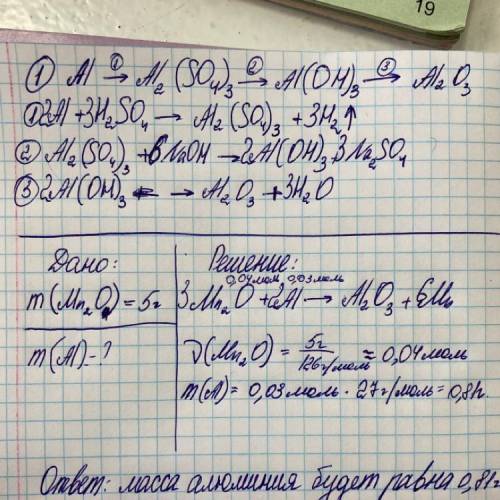 19
① Al →① Al₂(SO₄)₃ →② Al(OH)₃ →③ Al₂O₃
① 2Al+3H₂SO₄ → Al₂(SO₄)₃ + 3H₂↑
② Al₂(SO₄)₃ + 6NaOH → 2Al(OH)₃ 3Na₂SO₄
③ 2Al(OH)₃ → Al₂O₃ + 3H₂O
Дано:
m(Mn₂O) = 5г
m(Al) - ?
Решение:
0,04моль 0,03моль
3Mn₂O + 2Al → Al₂O₃ + 6Mn
ν(Mn₂O) = 5г / 126г/моль ≈ 0,04моль
m(Al) = 0,03моль · 27г/моль = 0,81г.
Ответ: масса алюминия будет равна 0,81г